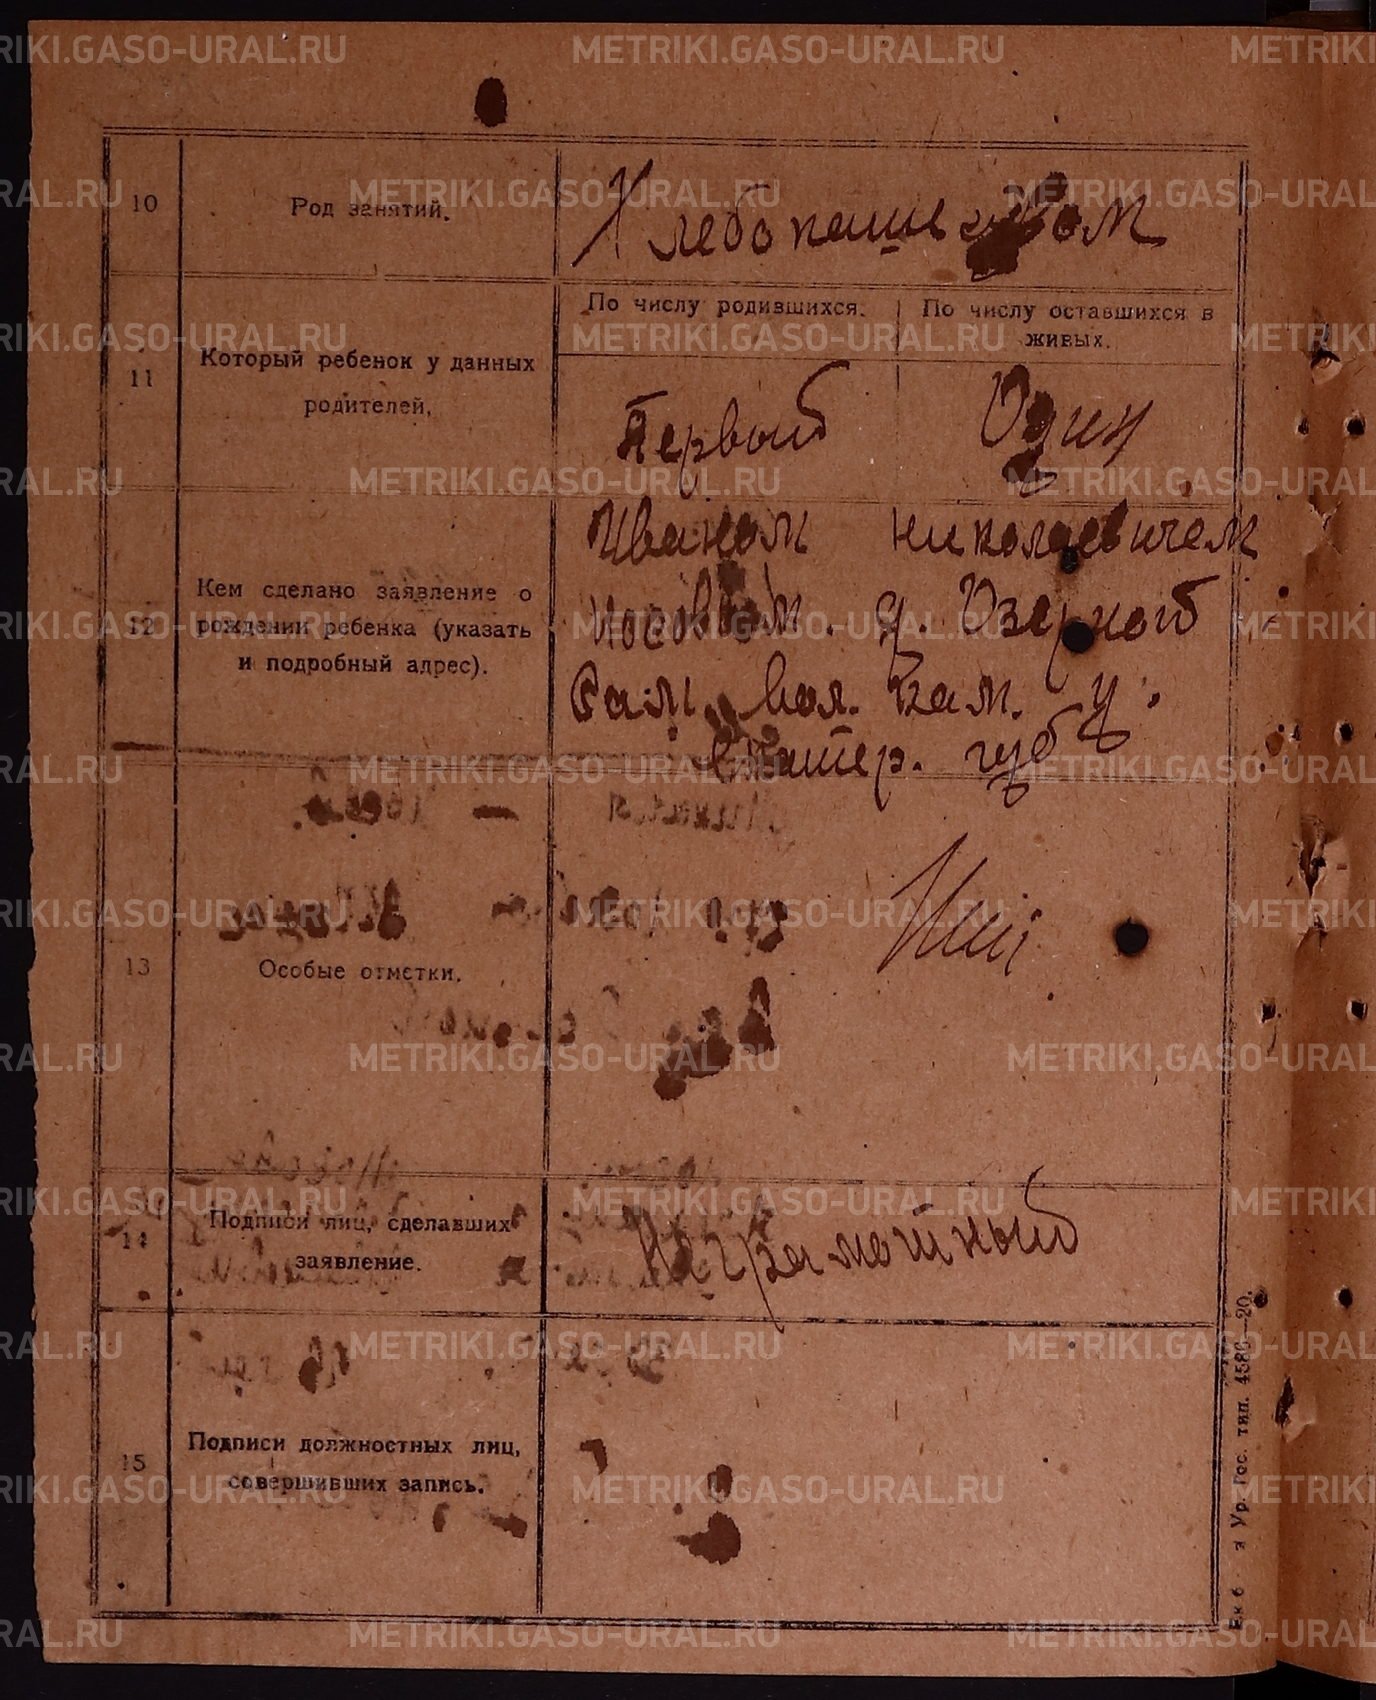 10
Род занятий.
Хлебопашеством
11
Который ребенок у данных
родителей.
По числу родившихся.
По числу оставшихся в
живых.
Первый
Один
12
Кем сделано заявление о
рождении ребенка (указать
и подробный адрес).
Иваном Николаевичем
Носовым. д. Озерной
вол. Кам. у.
Екатер. губ
13
Особые отметки.
14
Подписи лиц, сделавших
заявление.
Неграмотный
15
Подписи должностных лиц,
совершивших запись.
Ур. Гос. тип. 4586—20.
METRIKI.GASO-URAL.RU